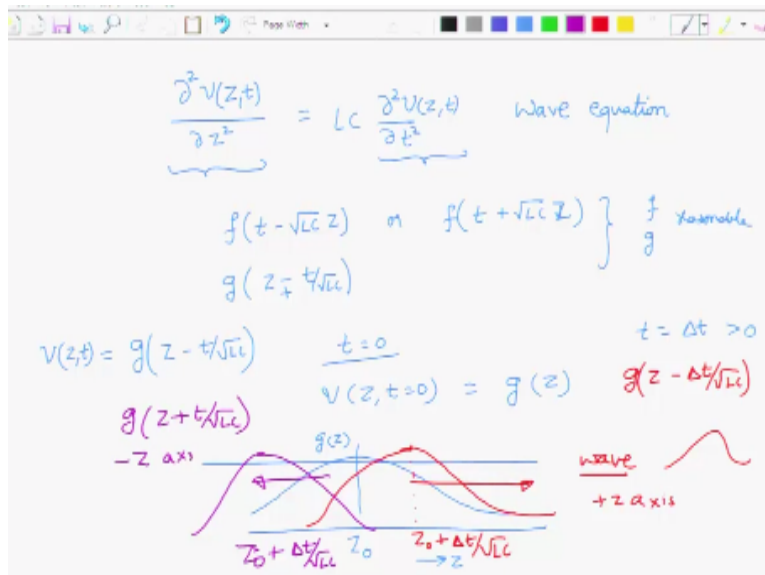 Page Width
∂²V(z,t)/∂z² = LC ∂²V(z,t)/∂t² Wave equation
f(t - √LC z) or f(t + √LC z) } f reasonable
g(z ∓ t/√LC) g
t = Δt > 0
V(z,t) = g(z - t/√LC) t=0
V(z, t=0) = g(z) g(z - Δt/√LC)
g(z + t/√LC)
-z axis g(z) wave
+z axis
z₀ + Δt/√LC z₀ z₀ + Δt/√LC
→ z